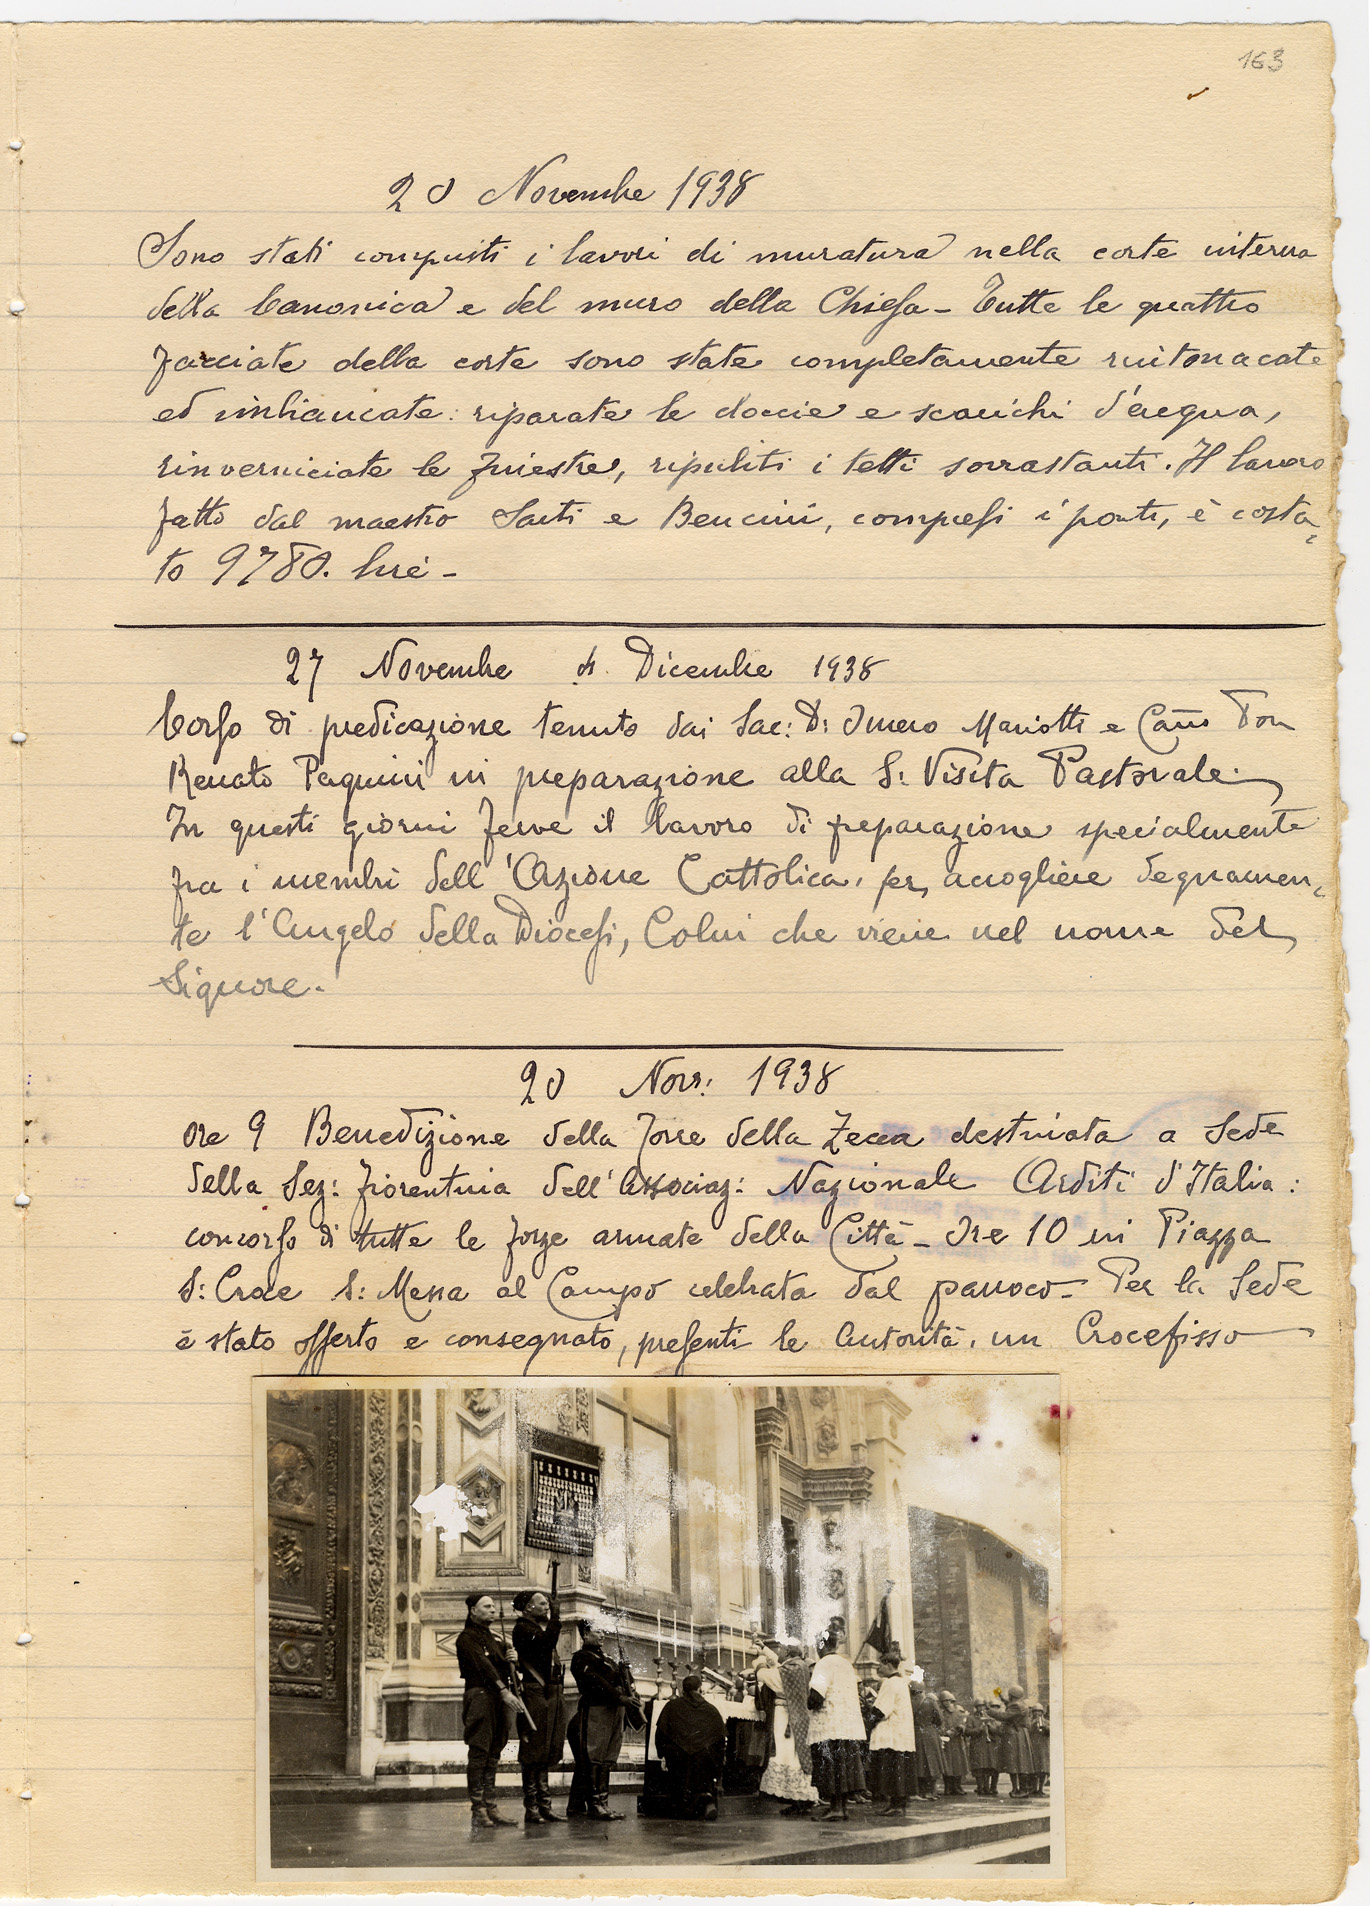 163
20 Novembre 1938
Sono stati compiuti i lavori di muratura nella corte interna
della Canonica e del muro della Chiesa - Tutte le quattro
facciate della corte sono state completamente rintonacate
ed imbiancate: riparate le doccie e scarichi d'acqua,
rinverniciate le finestre, ripuliti i tetti sovrastanti. Il lavoro
fatto dal maestro Sarti e Bencini, compresi i ponti, è costa-
to 9780. lire -
27 Novembre 4 Dicembre 1938
Corso di predicazione tenuto dai Sac: D: Omero Mariotti e Can Don
Renato Pagnini in preparazione alla S: Visita Pastorale.
In questi giorni ferve il lavoro di preparazione specialmente
fra i membri dell'Azione Cattolica, per accogliere degnamen-
te l'Angelo della Diocesi, Colui che viene nel nome del
Signore.
20 Nov: 1938
Ore 9 Benedizione della Torre della Zecca destinata a Sede
della Sez: fiorentina dell'Associaz: Nazionale Arditi d'Italia:
concorso di tutte le forze armate della Città - Ore 10 in Piazza
S: Croce S: Messa al Campo celebrata dal parroco - Per la Sede
è stato offerto e consegnato, presenti le autorità, un Crocefisso